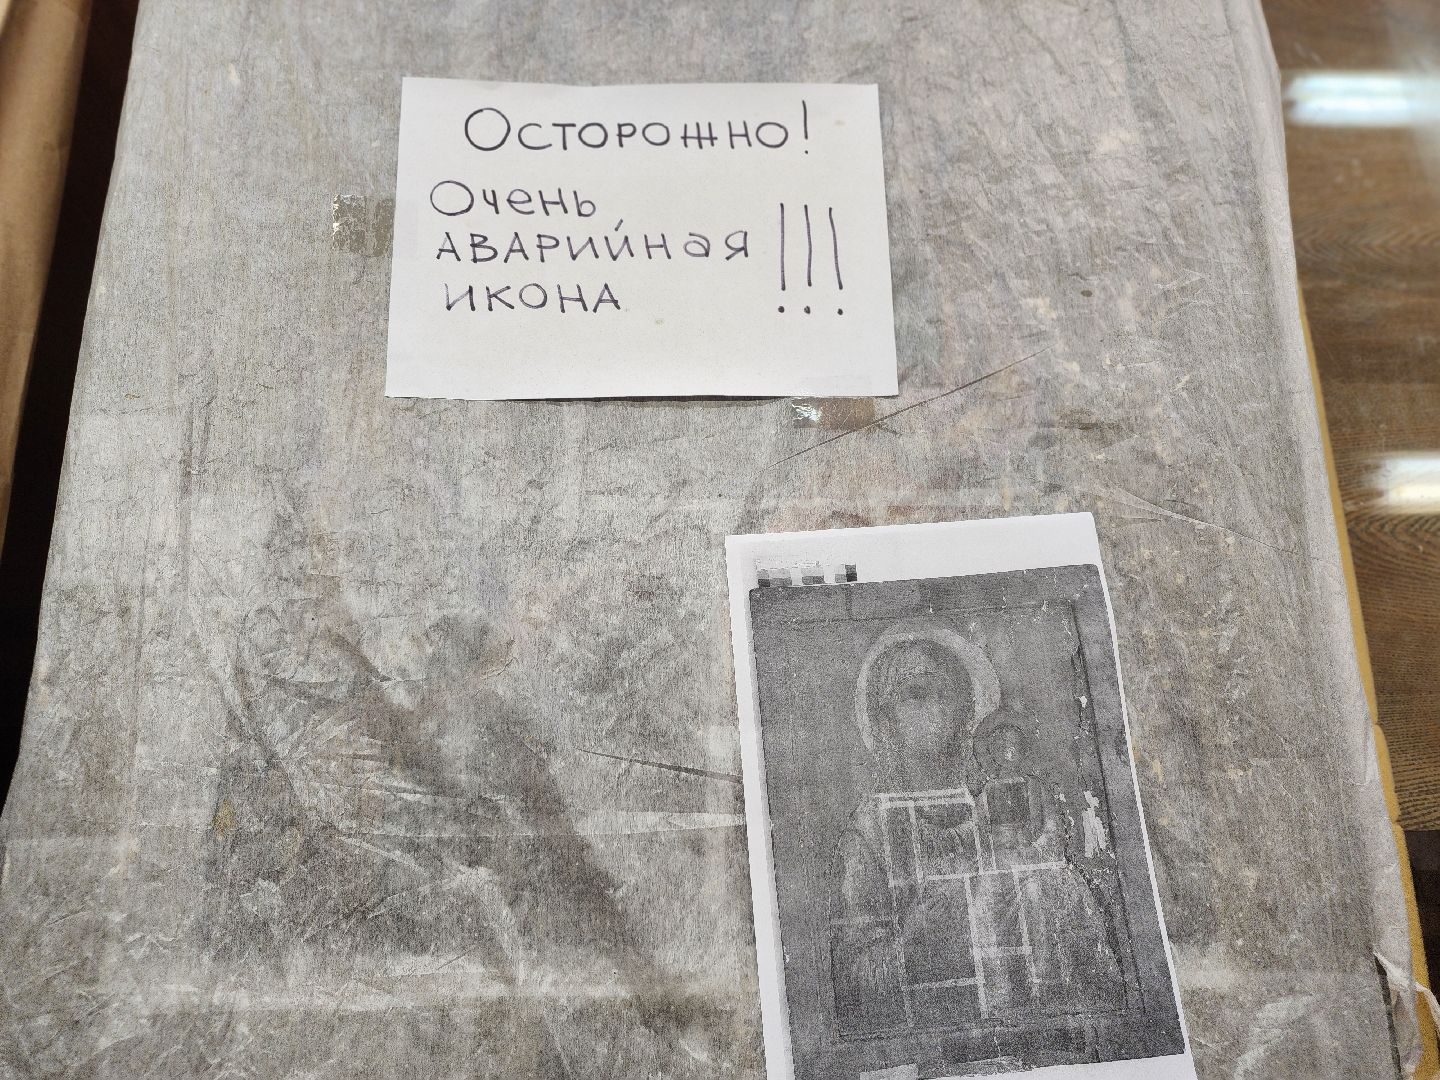 Осторожно!
Очень
аварийная !!!
икона